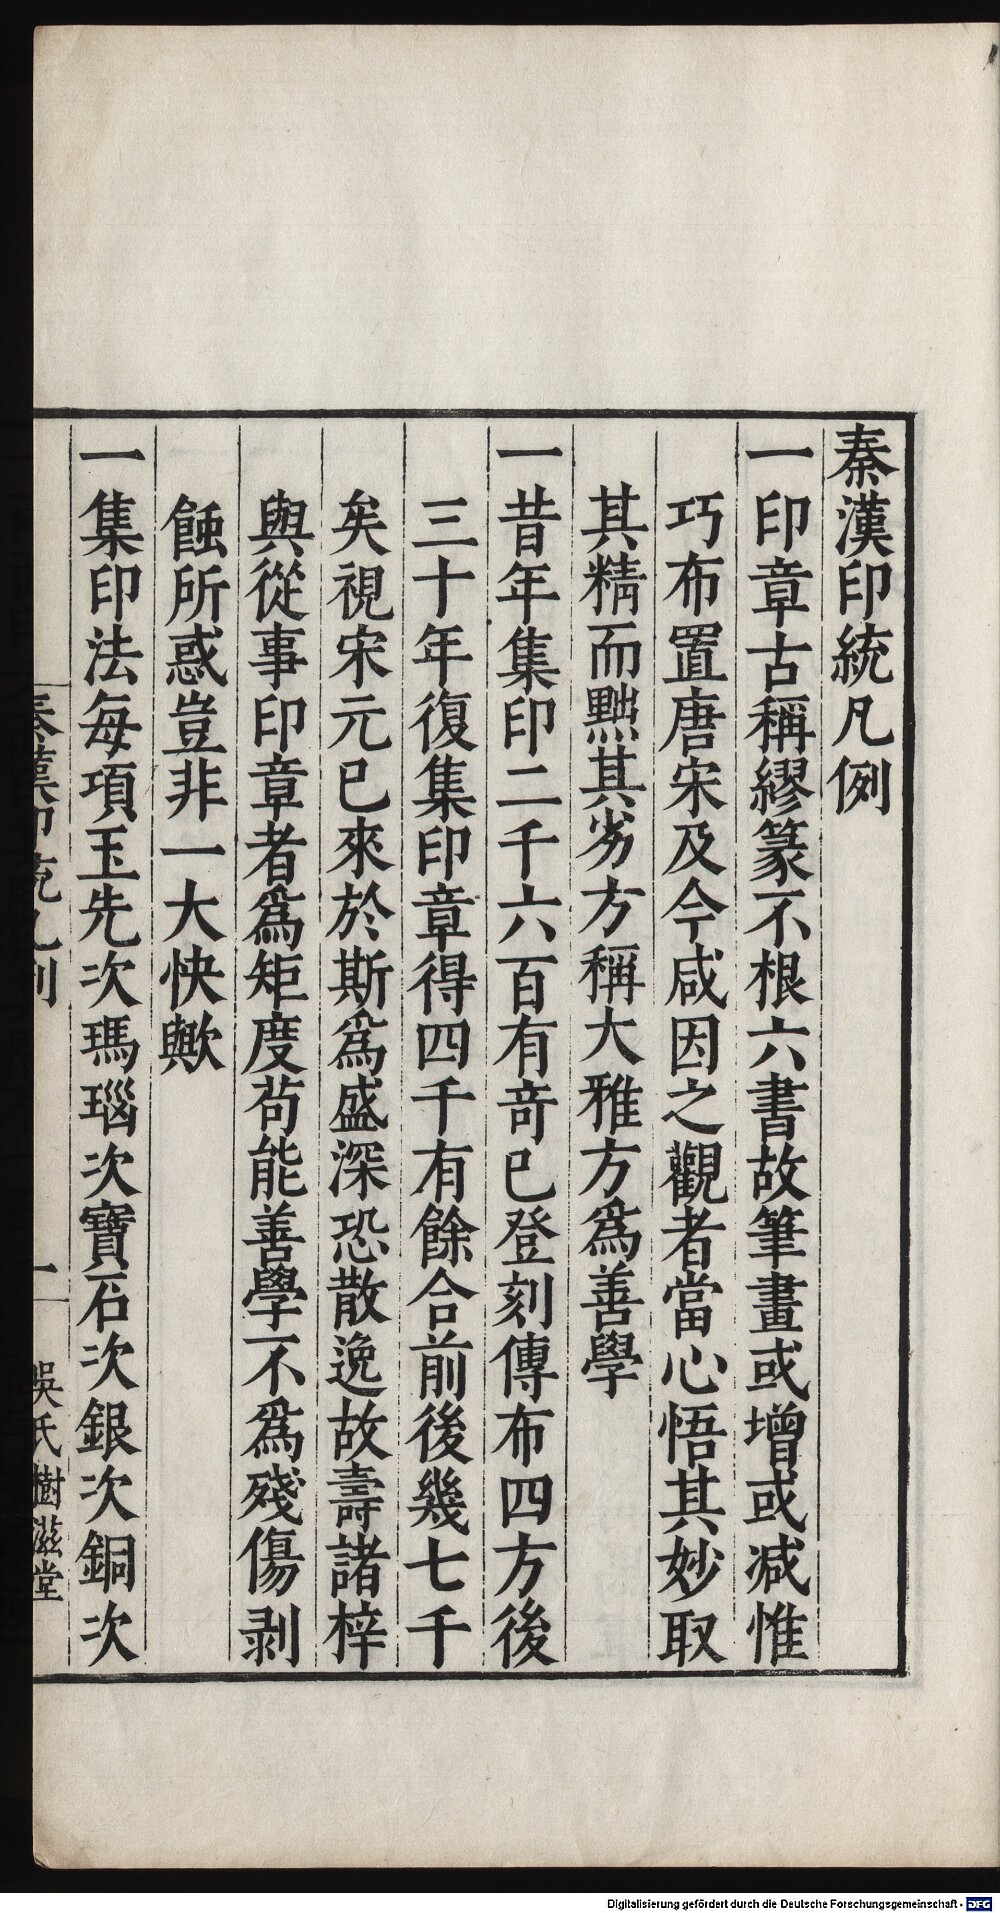 秦漢印統凡例
一印章古稱繆篆不根六書故筆畫或增或減惟
巧布置唐宋及今咸因之觀者當心悟其妙取
其精而黜其劣方稱大雅方爲善學
一昔年集印二千六百有奇已登刻傳布四方後
三十年復集印章得四千有餘合前後幾七千
矣視宋元已來於斯爲盛深恐散逸故壽諸梓
與從事印章者爲矩度苟能善學不爲殘傷剥
蝕所惑豈非一大快歟
一集印法每項玉先次瑪瑙次寶石次銀次銅次
秦漢印統凡例 一 吳氏樹滋堂
Digitalisierung gefördert durch die Deutsche Forschungsgemeinschaft - DFG